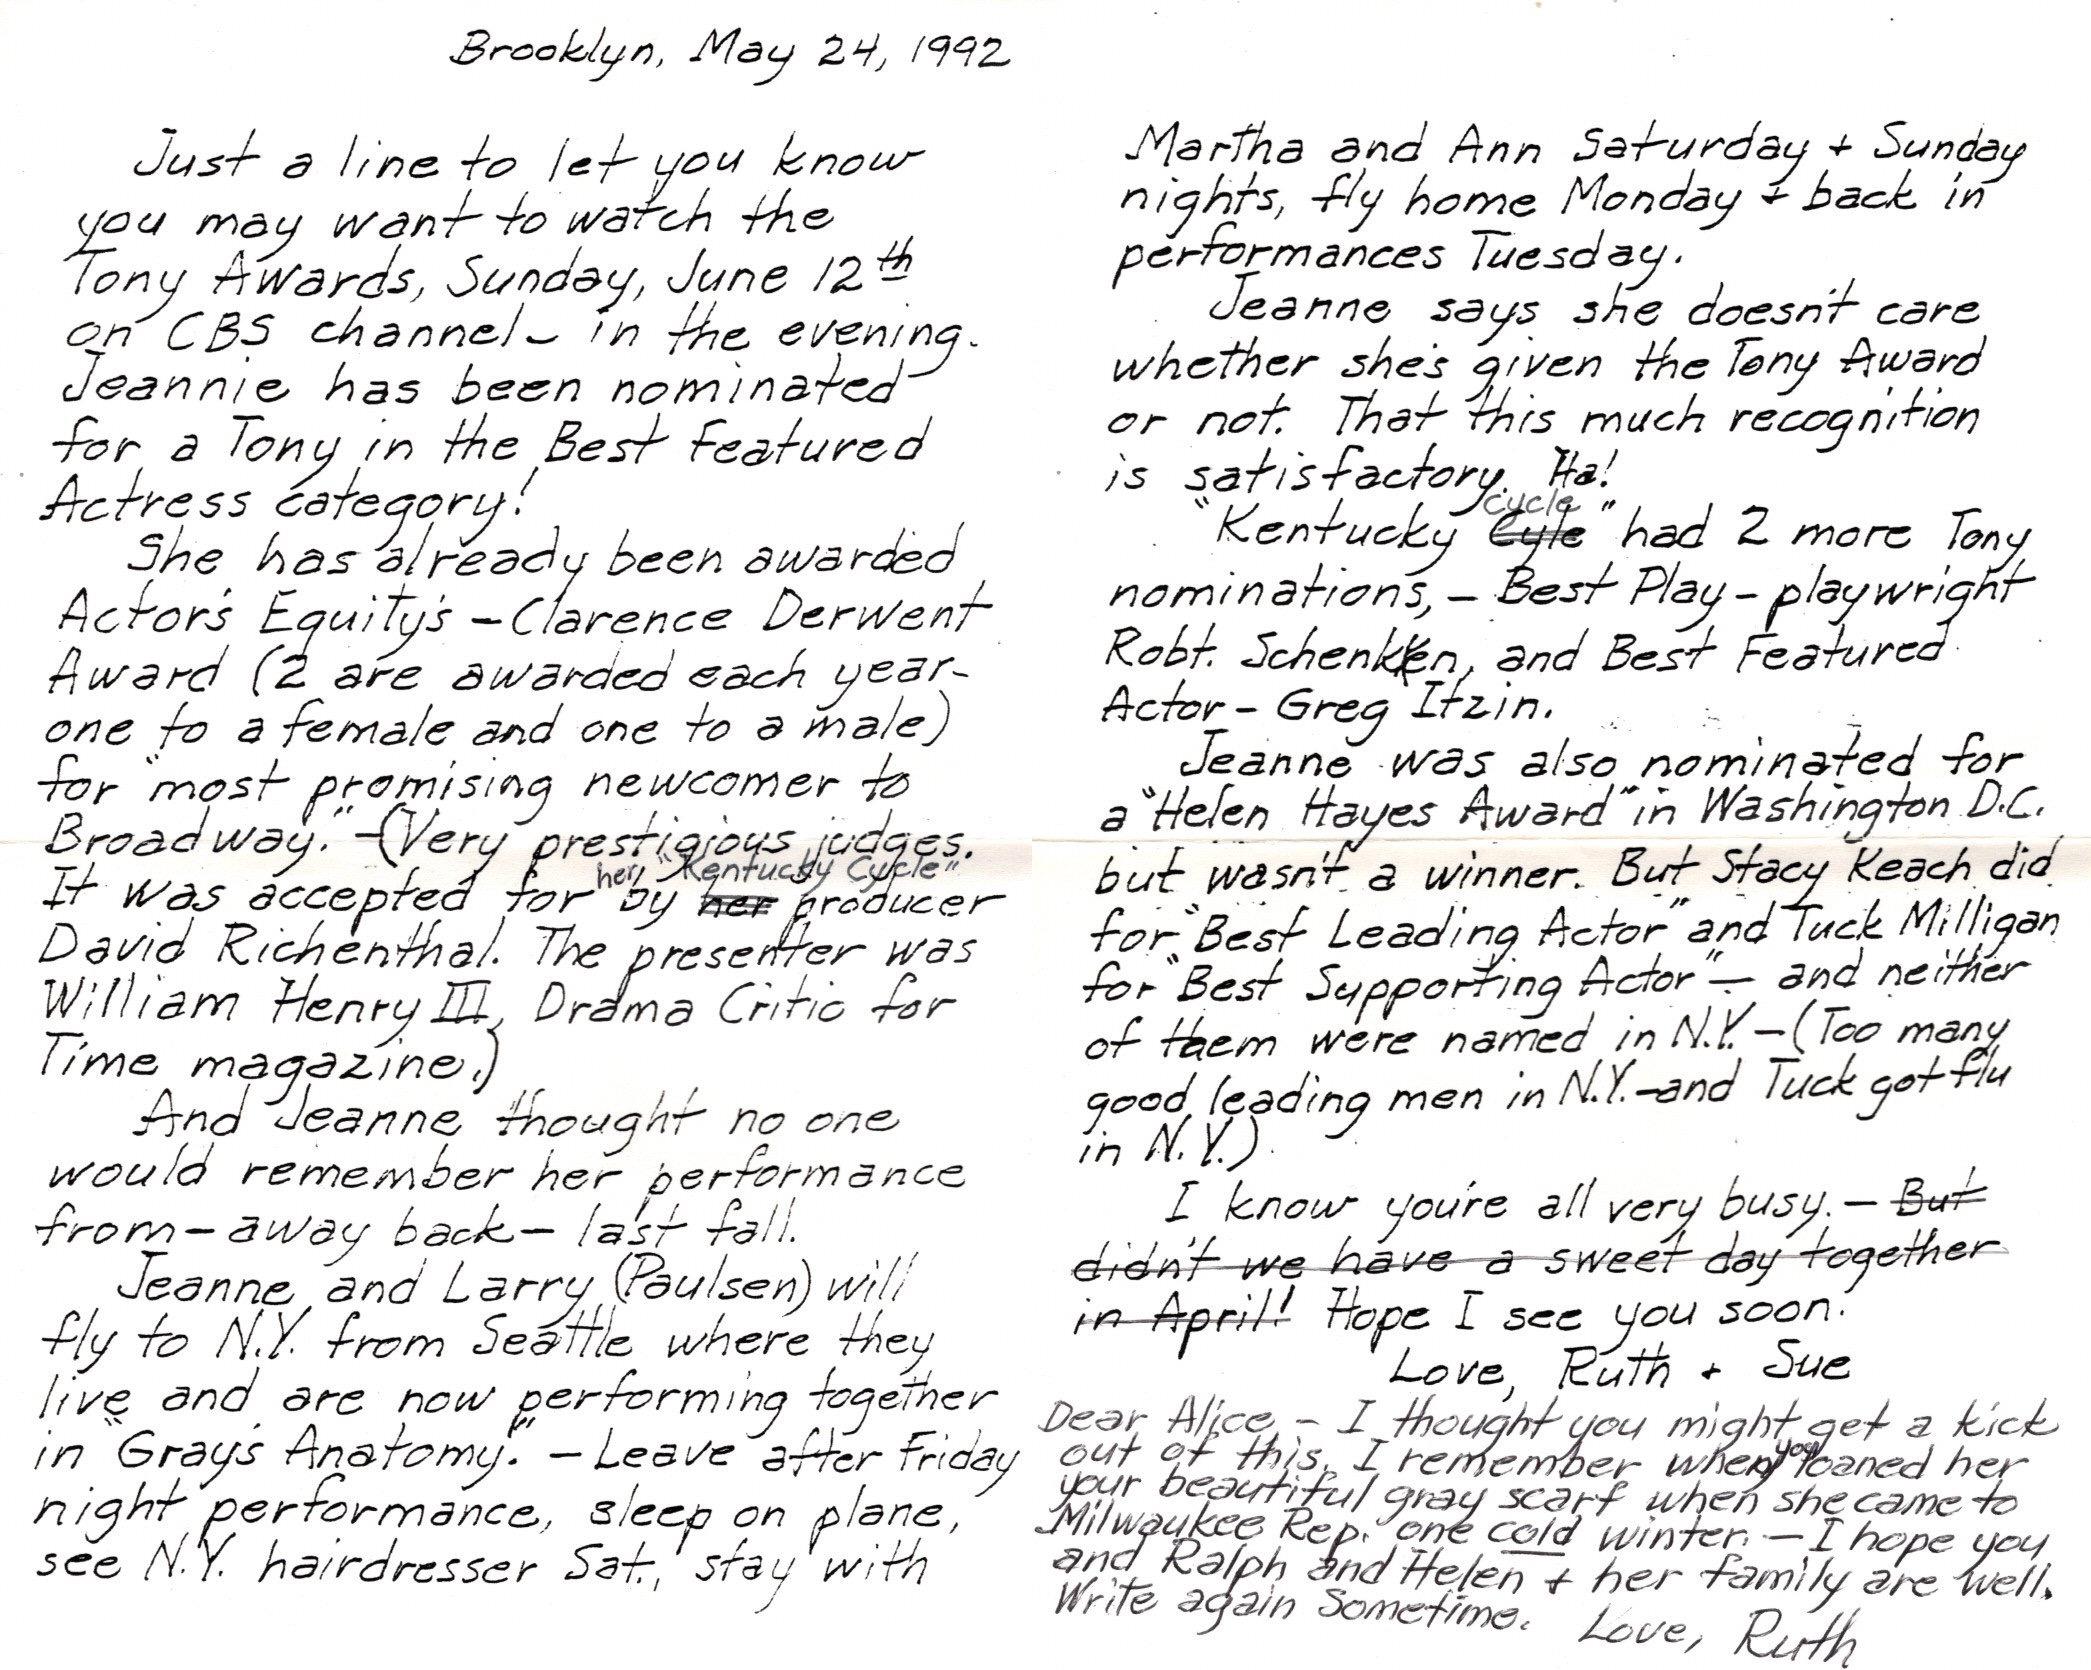 Brooklyn, May 24, 1992
Just a line to let you know
you may want to watch the
Tony Awards, Sunday, June 12th
on CBS channel – in the evening.
Jeannie has been nominated
for a Tony in the Best Featured
Actress category!
She has already been awarded
Actor's Equity's – Clarence Derwent
Award (2 are awarded each year –
one to a female and one to a male)
for "most promising newcomer to
Broadway." – (Very prestigious judges.
It was accepted for her by her "Kentucky Cycle" producer
David Richenthal. The presenter was
William Henry III, Drama Critic for
Time magazine.)
And Jeanne thought no one
would remember her performance
from – away back – last fall.
Jeanne and Larry (Paulsen) will
fly to N.Y. from Seattle where they
live and are now performing together
in "Gray's Anatomy." – Leave after Friday
night performance, sleep on plane,
see N.Y. hairdresser Sat., stay with
Martha and Ann Saturday + Sunday
nights, fly home Monday + back in
performances Tuesday.
Jeanne says she doesn't care
whether she's given the Tony Award
or not. That this much recognition
is satisfactory. Ha!
"Kentucky Cyle Cycle" had 2 more Tony
nominations, – Best Play – playwright
Robt. Schenkken, and Best Featured
Actor – Greg Itzin.
Jeanne was also nominated for
a "Helen Hayes Award" in Washington D.C.
but wasn't a winner. But Stacy Keach did
for "Best Leading Actor" and Tuck Milligan
for "Best Supporting Actor" – and neither
of them were named in N.Y. – (Too many
good leading men in N.Y. – and Tuck got flu
in N.Y.)
I know you're all very busy. – But
didn't we have a sweet day together
in April! Hope I see you soon.
Love, Ruth + Sue
Dear Alice – I thought you might get a kick
out of this. I remember when you loaned her
your beautiful gray scarf when she came to
Milwaukee Rep. one cold winter. – I hope you
and Ralph and Helen + her family are well.
Write again sometime. Love, Ruth